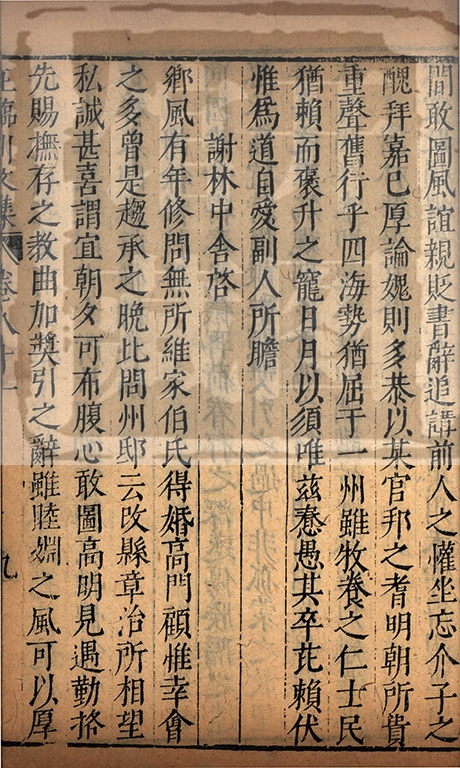 間敢圖風誼親貶書辭追講前人之懽坐忘介子之
醜拜嘉已厚論媿則多恭以某官邦之耆明朝所貴
重聲舊行乎四海勢猶屈于一州雖牧養之仁士民
猶賴而褒升之寵日月以須唯兹惷愚其卒芘賴伏
惟爲道自愛副人所瞻
謝林中舍啓
鄉風有年修問無所維家伯氏得婚高門顧惟幸會
之多曾是趨承之晚比問州邸云改縣章治所相望
私誠甚喜謂宜朝夕可布腹心敢圖高明見遇勤挌
先賜撫存之教曲加奬引之辭雖睦婣之風可以厚
王臨川文集 卷八十一 九